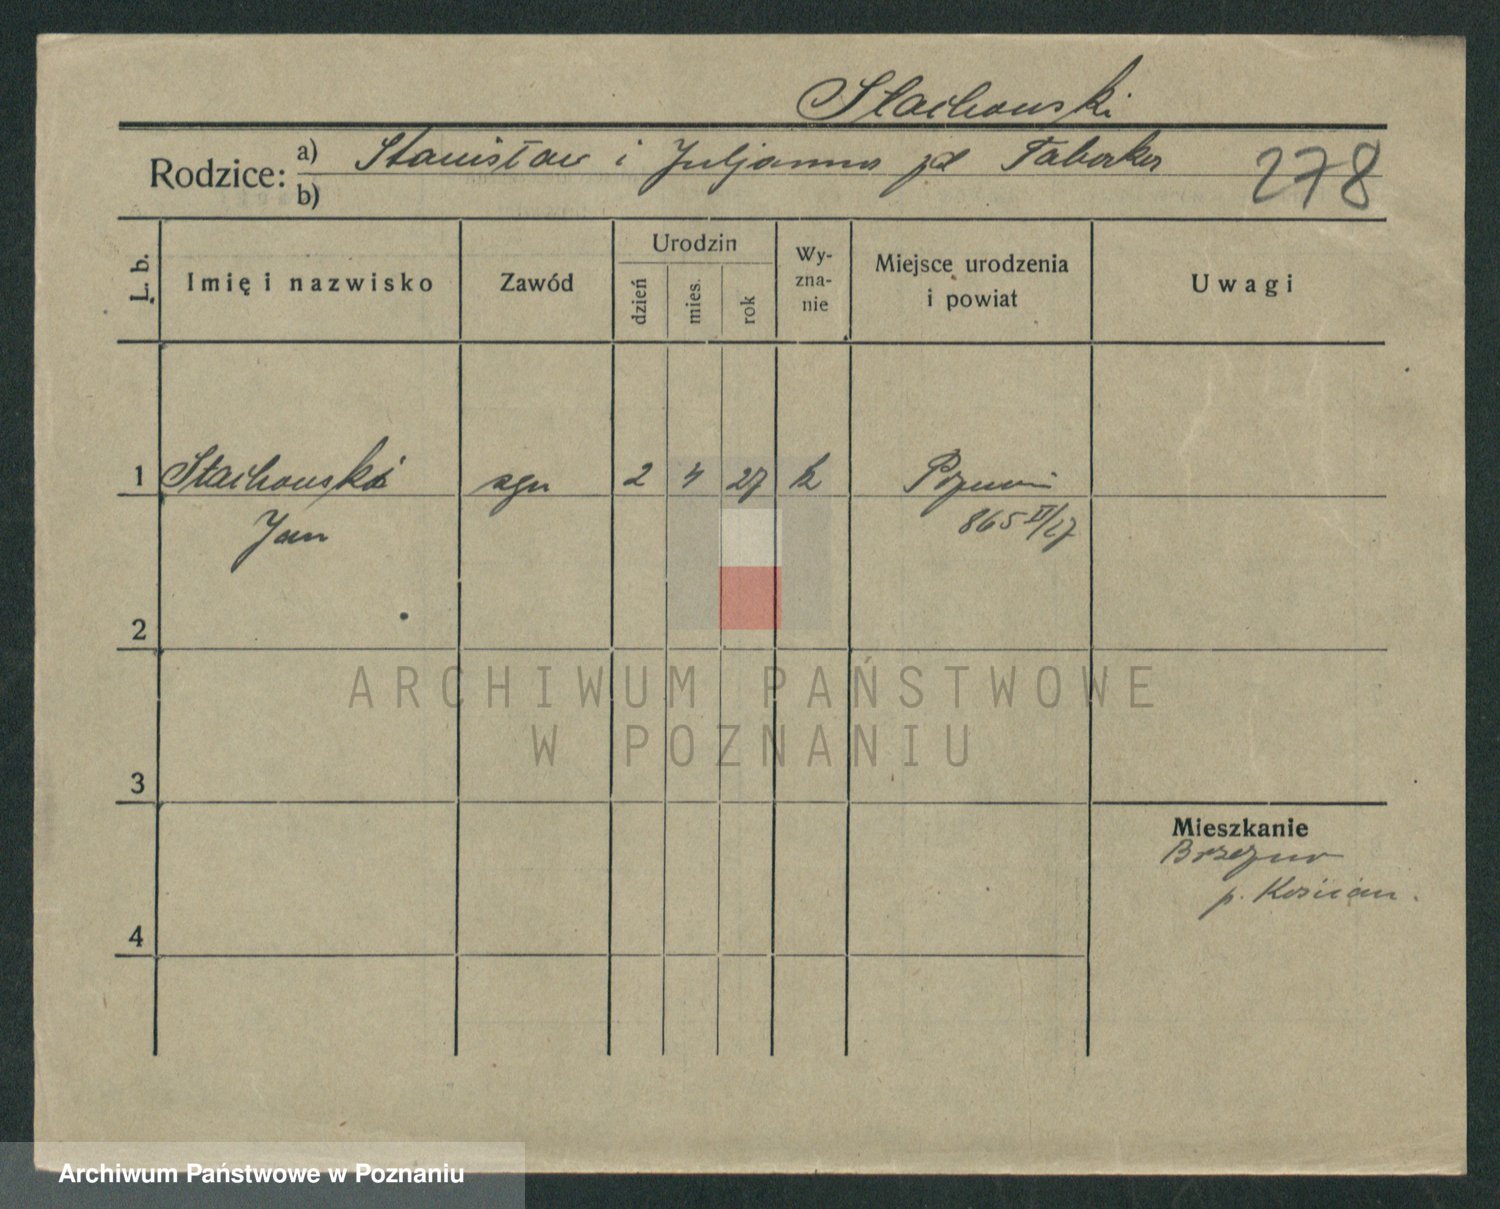 Stachowski
Rodzice: a) Stanisław i Juljanna zd Taborka
b)
278
L. b.
Imię i nazwisko
Zawód
Urodzin
dzień
mies.
rok
Wy-
zna-
nie
Miejsce urodzenia
i powiat
Uwagi
1 Stachowski 2 4 27 k Poznań
Jan 865 II/27
2
3
4
Mieszkanie
Brzezno
p. Kościan.
ARCHIWUM PAŃSTWOWE
W POZNANIU
Archiwum Państwowe w Poznaniu